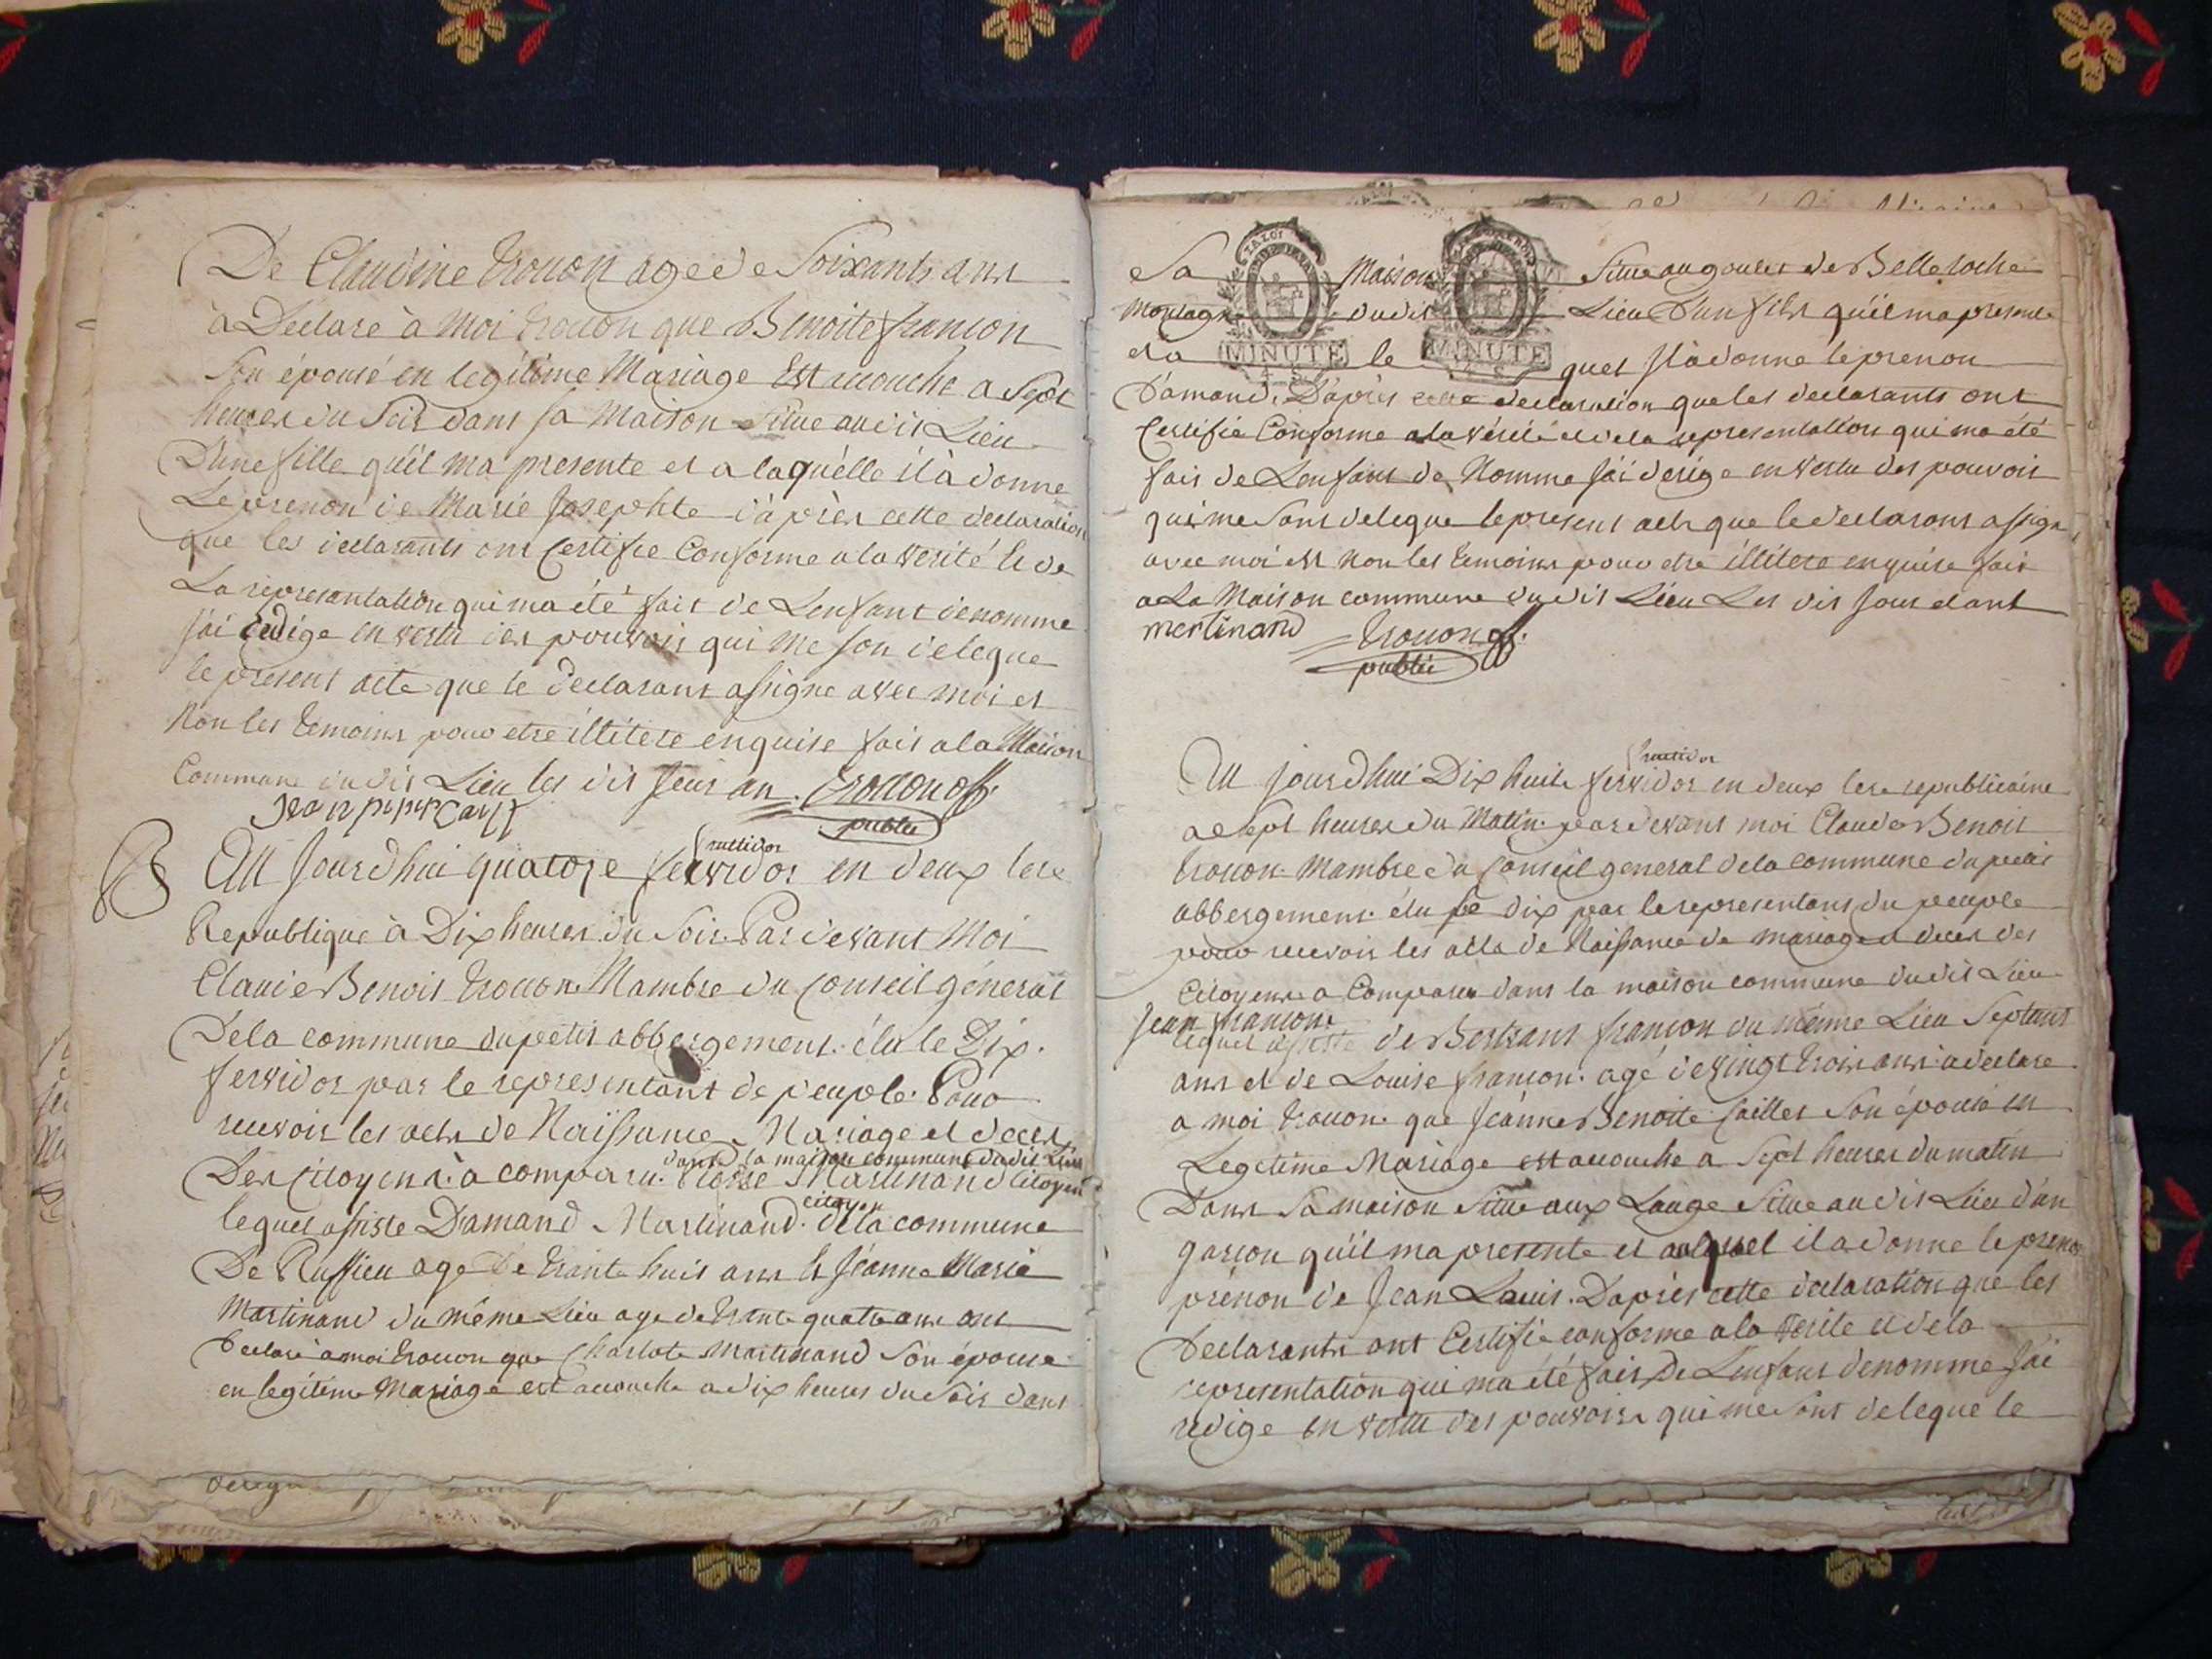 De Claudine trouon agee de Soixante ans
à Declare à moi trouon que Benoite françon
Son épouse en legitime Mariage Est acouche a Sept
heures du Soir dans sa Maison Situe audit Lieu
D'une fille qu'il ma presente et a laquelle il à donne
Le prenon de Marie Josephte d'àprès cette declaration
que les declarants ont Certifie Conforme a la verité & de
La representation qui ma été fait de Lenfant denomme
j'ai redige en vertu des pouvoir qui me son delegue
le present acte que le declarant a signe avec moi et
Non les temoins pour etre illitere enquise fait a la Maison
Commune dudit Lieu les dit Jour an. trouon off.
publie
Au Jourdhui quatorze fervidor fructidor en deux lere
Republique à Dix heures du Soir Par devant Moi
Claude Benoit trouon Mambre du Conseil géneral
Dela commune du petit abbergement. élu le Dix.
fervidor par le representant de peuple. Pour
recevoir les acte de Naissance, Mariage et deces
dans la maison commune dudit Lieu
Des Citoyens. à comparu. Martinand Citoyen
citoyen
lequel assiste Damand Martinand. de la commune
De Ruffieu age de trante huit ans & Jéanne Marie
Martinand du même Lieu age de trante quatre ans ont
Declaré a moi trouon que Charlote Martinand Son épouse
en legitime Mariage est acouche a dix heures du Soir dans
Sa Maison Situe au goulet de Belle roche
Montagne dudit Lieu D'un fils qu'il ma presente
MINUTE MINUTE
et a le quel Il à donne le prenon
D'amand. D'après cette declaration que les declarants ont
Certifie Conforme a la vérité et de la representation qui ma été
fait de Lenfant de Nomme J'ai derige en vertu des pouvoir
qui me sont delegue le present acte que le declarant a signe
avec moi et non les temoins pour etre illitere enquise fait
a La Maison commune dudit Lieu Les dit Jour et ant
mertinand trouon off.
publie
fructidor
Au jourdhui Dix huite fervidor en deux lere republicaine
a Sept heures du Matin par devant moi Claude Benoit
trouon Mambre du Conseil general de la commune du petit
abbergement. élu le dix par le representans du peuple
pour recevoir les acte de Naissance de mariage a deces des
Citoyens a Comparu dans la maison commune dudit Lieu
Jean françon
lequel assiste de Bertrant françon du même Lieu Septant
ans et de Louise françon. agé de vingt trois ans a declare
a moi trouon que Jéanne Benoite Sailles Son épouse en
Legetime Mariage est acouche a Sept heures du matin
Dans Sa maison Situe aux Lauge Situe au dit Lieu d'un
garson qu'il ma presente et auquel il a donne le preno
prénon de Jean Louis. Daprès cette declaration que les
Declarants ont Certifie conforme a la verite et de la
representation qui ma été fait de Lenfant denomme J'ai
redige en vertu des pouvoirs qui me sont delegue le